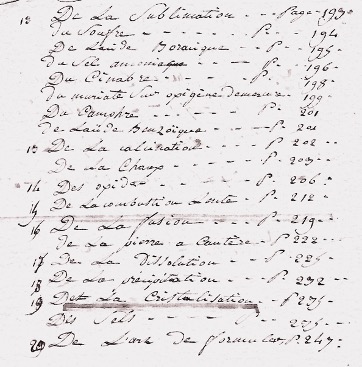 12 De La Sublimation - - - Page - 193
du Soufre - - - - P. - - 194
De L'acide Boracique - - P. - - 195
du Sel amoniac - - - P. - - 196
Du Cinabre - - - P. - - 198
du muriate Sur oxigéné de mercure - 199
Du Camphre - - - P. - - 201
de L'acide Benzoïque - - P. - 201
13 De La calcination - - - P. - 202
De La Chaux - - - - P. - 203
14 Des oxides - - - P. - 206
15 De La combustion Lente - P. - 212
16 De La fusion - - - P. - 219
de La pierre a Cautère - P. 222
17 De La Dissolution - - P. - 225
18 De La précipitation - - P. - 232
19 De La Cristalisation - P. 275
Des Sels - - - P. - 275
20 De L'art de formuler, P. 247